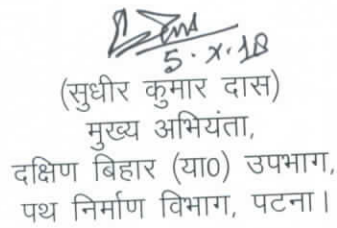 5.X.18
(सुधीर कुमार दास)
मुख्य अभियंता,
दक्षिण बिहार (या०) उपभाग,
पथ निर्माण विभाग, पटना।